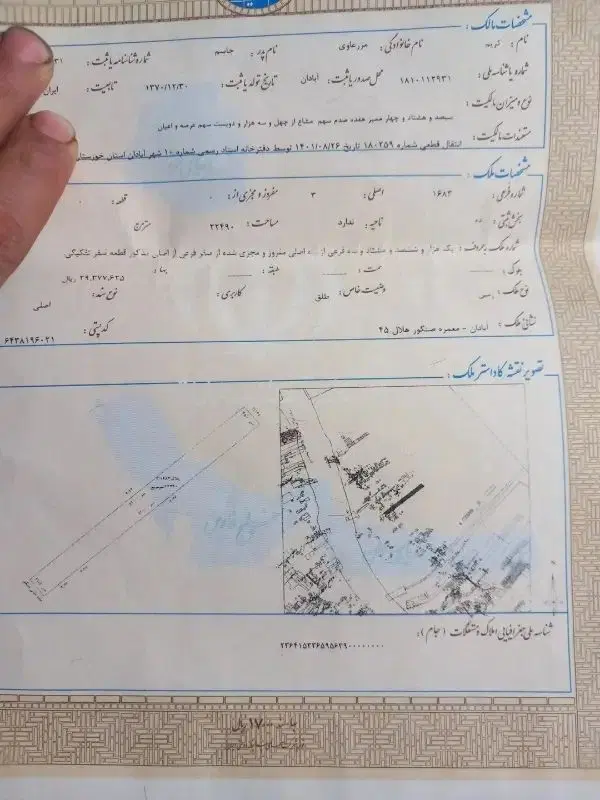 مشخصات مالک :
نام : نام خانوادگی : مزرعاوی نام پدر : جاسم شماره شناسنامه یا ثبت :
شماره یا شناسه ملی : ۱۸۱۰۱۱۲۹۳۱ محل صدور یا ثبت : آبادان تاریخ تولد یا ثبت : ۱۳۷۰/۱۲/۳۰ تابعیت : ایران
نوع و میزان مالکیت :
سیصد و هشتاد و چهار ممیز هفده صدم سهم مشاع از چهل و سه هزار و دویست سهم عرصه و اعیان
مستندات مالکیت :
انتقال قطعی شماره ۱۸۰۲۵۹ تاریخ ۱۴۰۱/۰۸/۲۶ توسط دفترخانه اسناد رسمی شماره ۱۰ شهر آبادان استان خوزستان
مشخصات ملک :
شماره فرعی : ۱۶۸۳ اصلی : ۳ مفروز و مجزی از : ۰ قطعه : ۰
بخش ثبتی : ناحیه : ندارد مساحت : ۲۲۴۹۰ مترمربع
شماره ملک به حروف : یک هزار و ششصد و هشتاد و سه فرعی از سه اصلی مفروز و مجزی شده از صفر فرعی از اصلی مذکور قطعه صفر تفکیکی
بلوک : سمت : طبقه : بها : ۲۹,۳۷۷,۶۲۵ ریال
نوع ملک : رسمی وضعیت خاص : طلق کاربری : نوع سند : اصلی
نشانی ملک : آبادان - معمره صنگور هلال ۴۵ کد پستی : ۶۴۳۸۱۹۶۰۲۱
تصویر نقشه کاداستر ملک :
شناسه ملی جغرافیایی املاک و مستغلات (سجام) :
۲۲۶۴۱۵۳۲۶۵۹۵۶۲۹۰۰۰۰۰۰۰۰